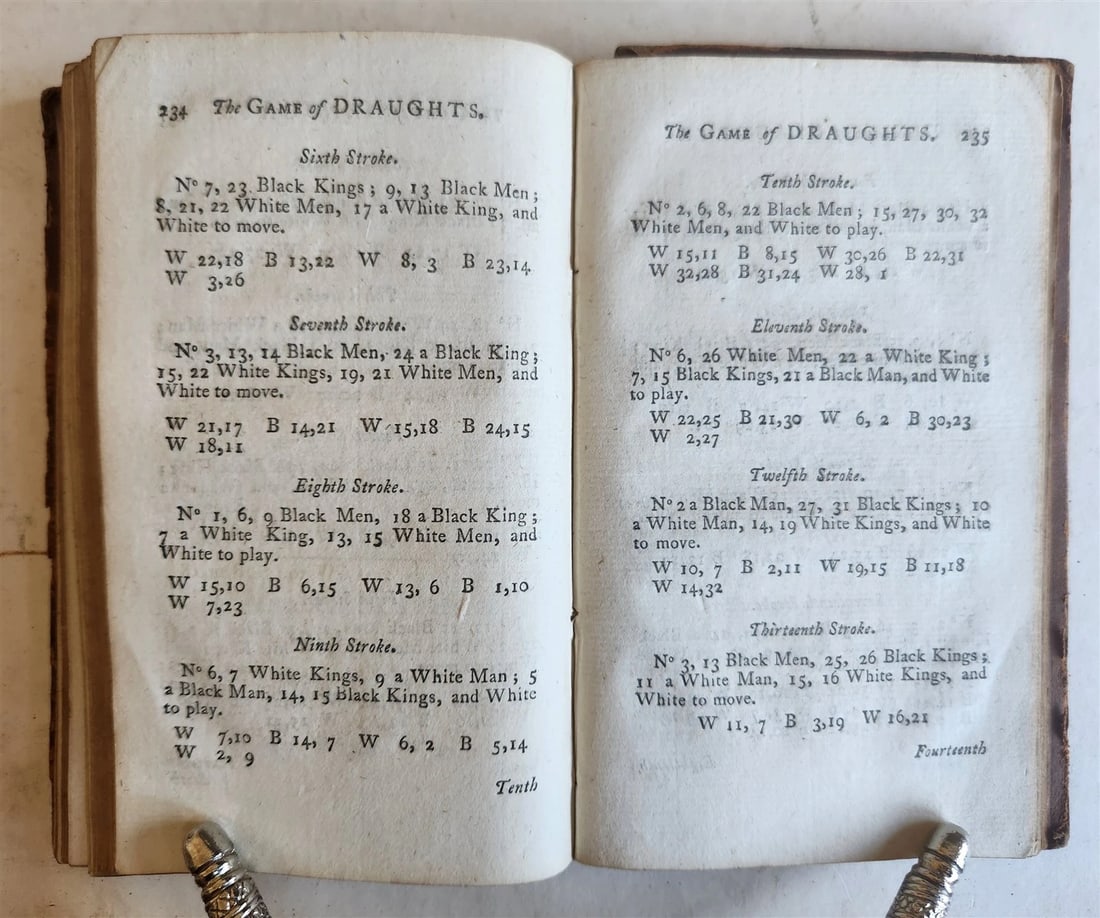 234 The GAME of DRAUGHTS.
Sixth Stroke.
No 7, 23 Black Kings; 9, 13 Black Men;
8, 21, 22 White Men, 17 a White King, and
White to move.
W 22,18 B 13,22 W 8, 3 B 23,14
W 3,26
Seventh Stroke.
No 3, 13, 14 Black Men, 24 a Black King;
15, 22 White Kings, 19, 21 White Men, and
White to move.
W 21,17 B 14,21 W 15,18 B 24,15
W 18,11
Eighth Stroke.
No 1, 6, 9 Black Men, 18 a Black King;
7 a White King, 13, 15 White Men, and
White to play.
W 15,10 B 6,15 W 13, 6 B 1,10
W 7,23
Ninth Stroke.
No 6, 7 White Kings, 9 a White Man; 5
a Black Man, 14, 15 Black Kings, and White
to play.
W 7,10 B 14, 7 W 6, 2 B 5,14
W 2, 9
Tenth
The GAME of DRAUGHTS. 235
Tenth Stroke.
No 2, 6, 8, 22 Black Men; 15, 27, 30, 32
White Men, and White to play.
W 15,11 B 8,15 W 30,26 B 22,31
W 32,28 B 31,24 W 28, 1
Eleventh Stroke.
No 6, 26 White Men, 22 a White King;
7, 15 Black Kings, 21 a Black Man, and White
to play.
W 22,25 B 21,30 W 6, 2 B 30,23
W 2,27
Twelfth Stroke.
No 2 a Black Man, 27, 31 Black Kings; 10
a White Man, 14, 19 White Kings, and White
to move.
W 10, 7 B 2,11 W 19,15 B 11,18
W 14,32
Thirteenth Stroke.
No 3, 13 Black Men, 25, 26 Black Kings;
11 a White Man, 15, 16 White Kings, and
White to move.
W 11, 7 B 3,19 W 16,21
Fourteenth